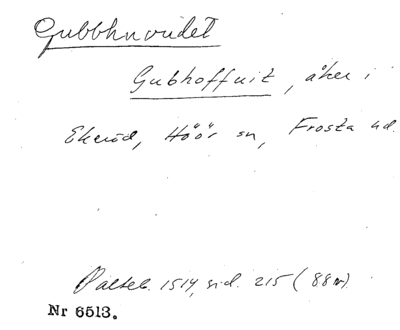 Gubbhuvudet
Gubhoffuit, åker i
Ekeröd, Höör sn, Frosta hd.
Palteb. 1514, sid. 215 (88v)
Nr 6513.